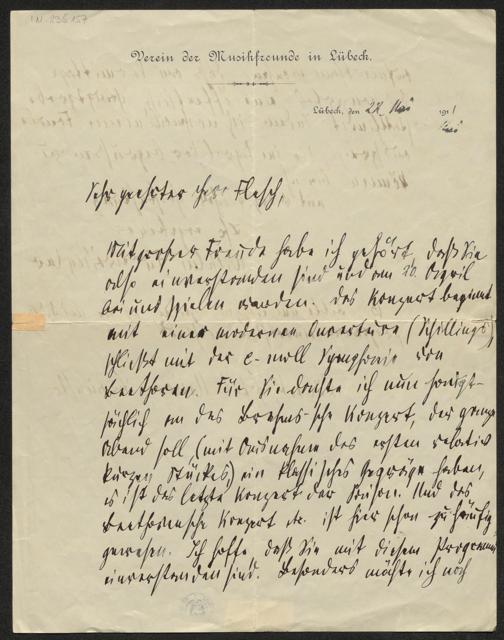 I.N. 236157
Verein der Musikfreunde in Lübeck.
Lübeck, den 28. Mai 1911
Mai
Sehr geehrter Herr Flesch,
Mit großer Freude habe ich gehört, daß Sie
also einverstanden sind und am 20. April
bei uns spielen werden. Das Konzert beginnt
mit einer modernen Ouverture (Schillings)
schließt mit der C-moll Symphonie von
Beethoven. Für Sie dachte ich nun haupt-
sächlich an das Brahms'sche Konzert, der ganze
Abend soll (mit Ausnahme des ersten relativ
kurzen Stückes) ein klassisches Gepräge haben,
es ist das letzte Konzert der Saison. Und das
Beethovensche Konzert etc. ist hier schon zu häufig
gewesen. Ich hoffe, daß Sie mit diesem Programm
einverstanden sind. Besonders möchte ich noch